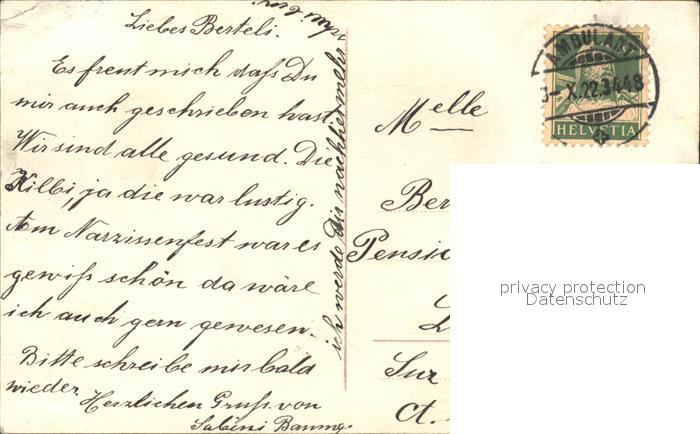 Liebes Berteli.
Es freut mich daß Du
mir auch geschrieben hast.
Wir sind alle gesund. Die
Kilbi, ja die war lustig.
Am Narzissenfest war es
gewiß schön da wäre
ich auch gern gewesen.
Bitte schreibe mir bald
wieder. Herzlichen Gruß von
Sabini Baumg.
ich werde Dir nachher mehr
Melle
Ber
Pensio
Sur
Ct.
AMBULANT
X.22
HELVETIA
privacy protection
Datenschutz